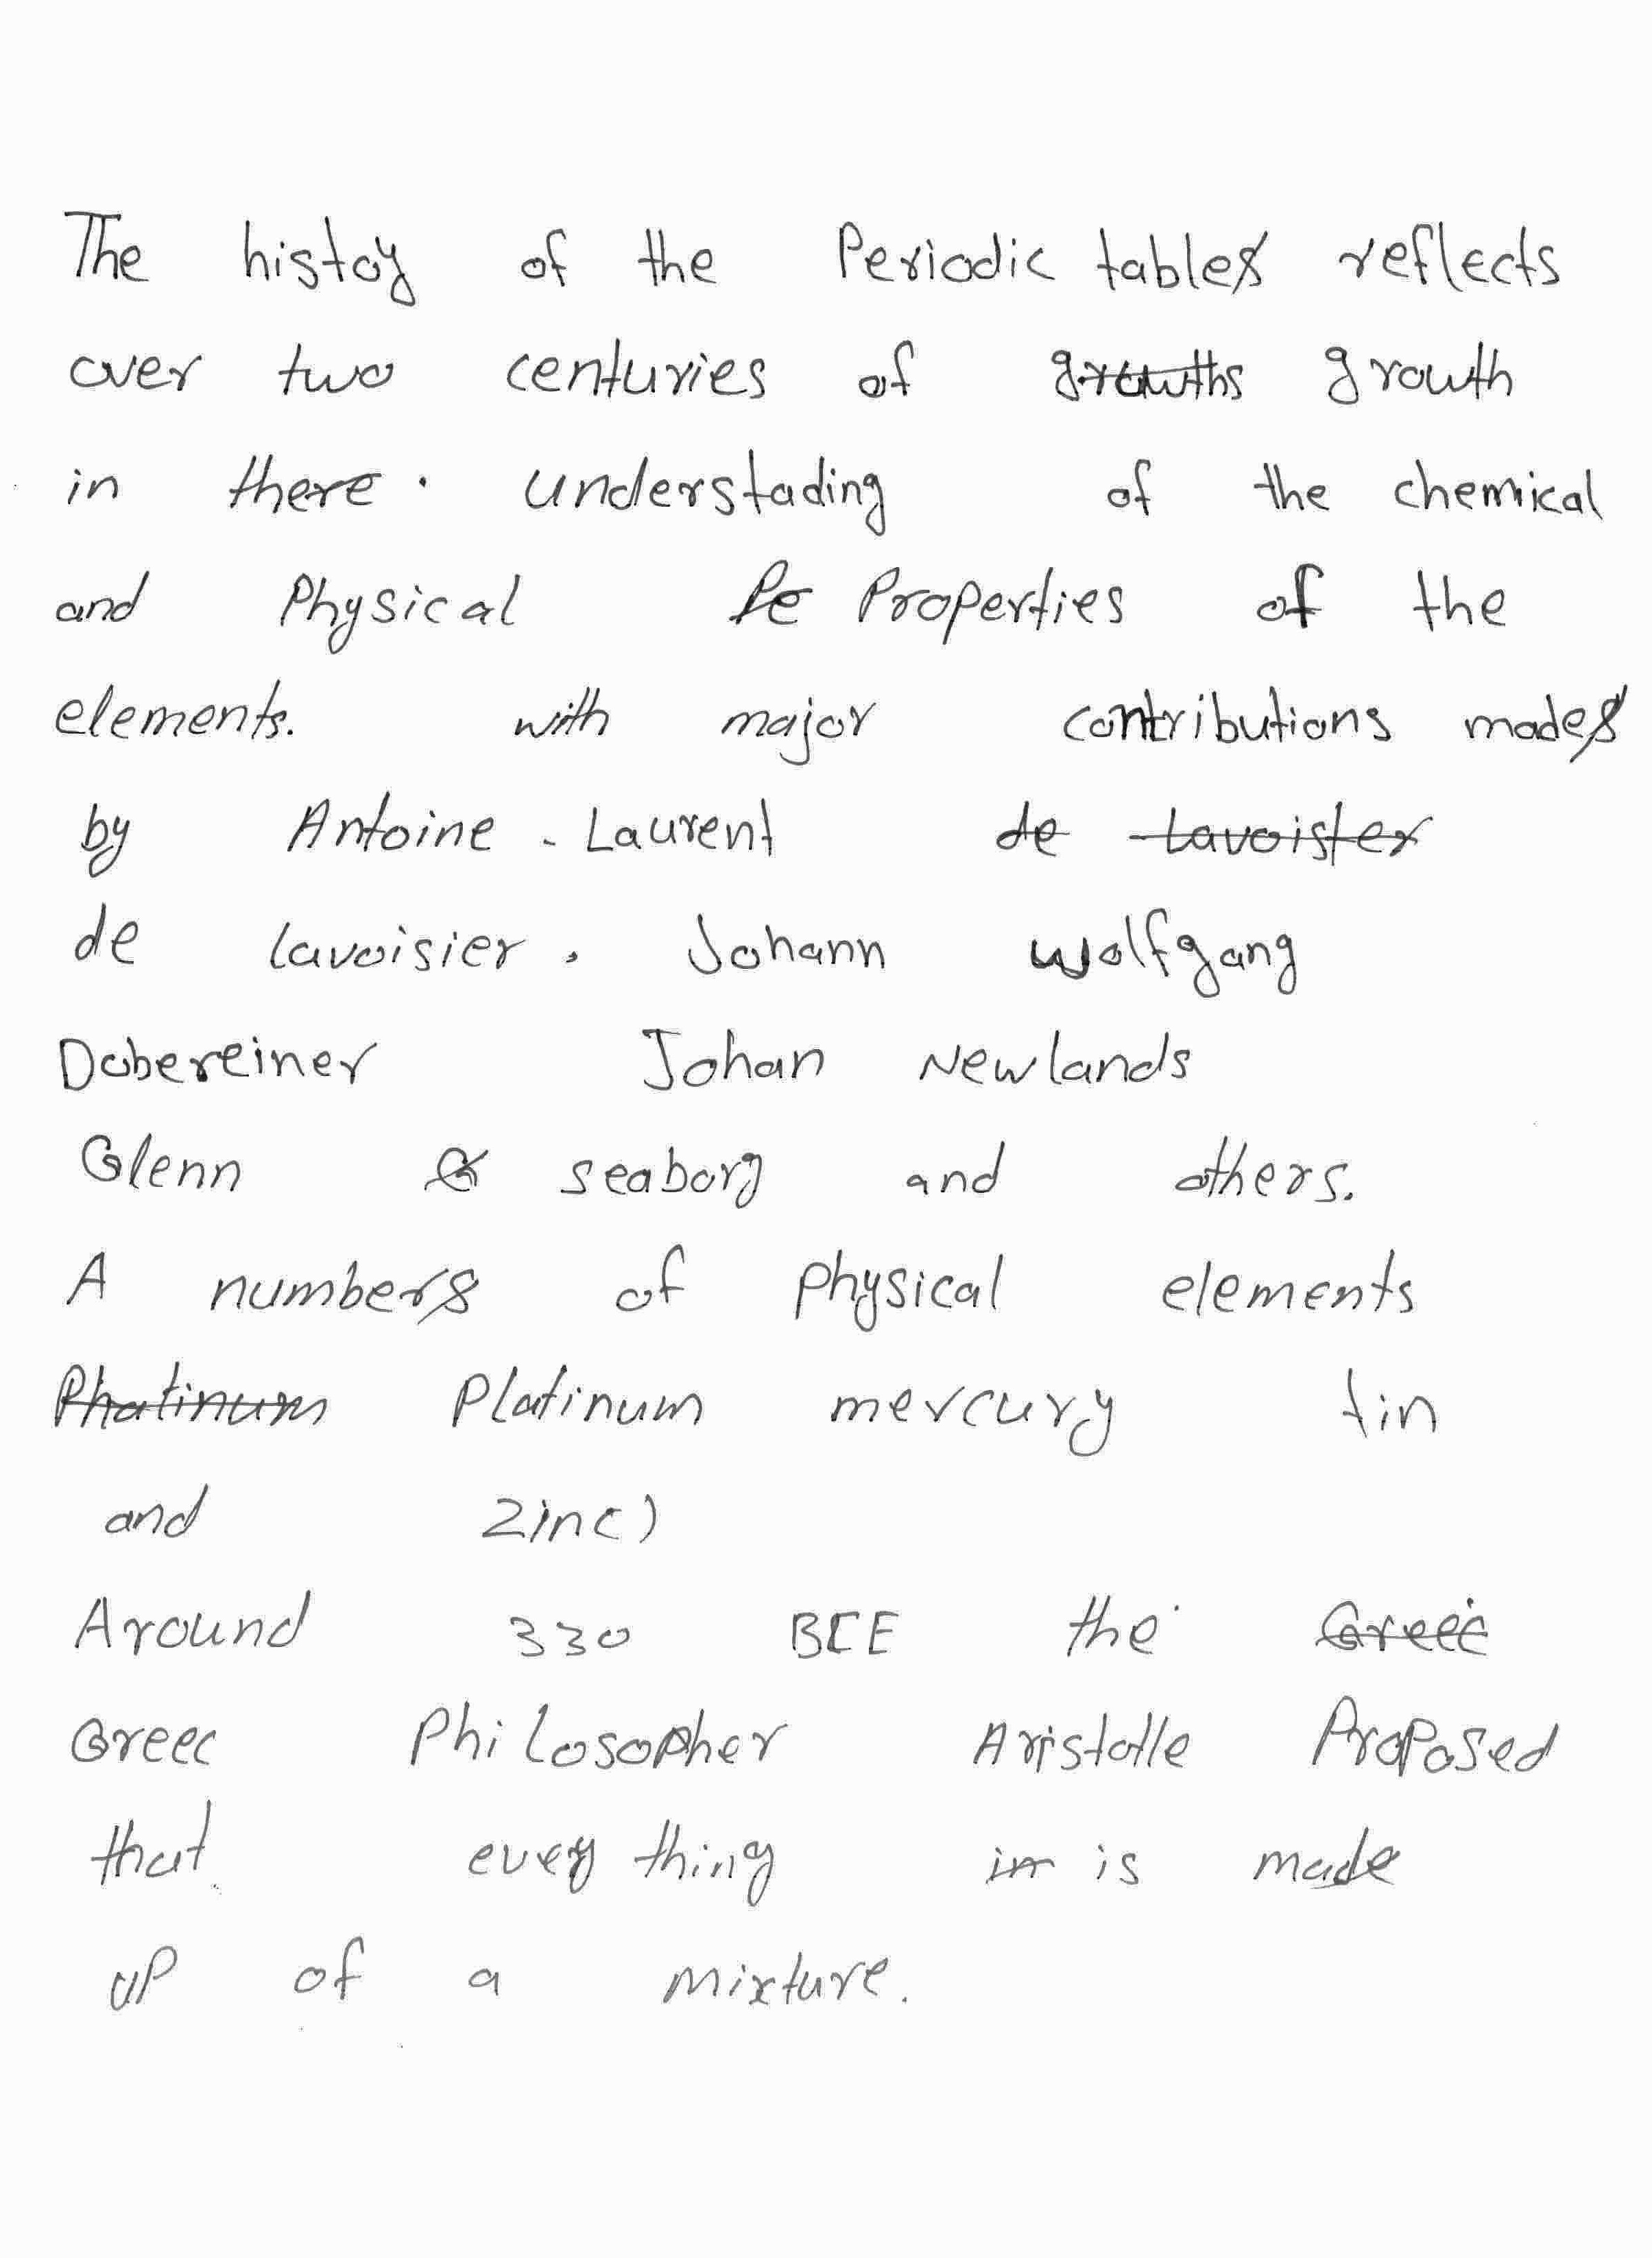 The histoy of the Periodic table reflects
over two centuries of growths growth
in there. understading of the chemical
and Physical Pe Properties of the
elements. with major contributions made
by Antoine - Laurent de Lavoister
de lavoisier, Johann wolfgang
Dobereiner Johan Newlands
Glenn G seaborg and others.
A number of physical elements
Phatinum Platinum mercury tin
and Zinc)
Around 330 BCE the Greec
Greec Philosopher Aristotle Proposed
that every thing in is made
up of a mixture.